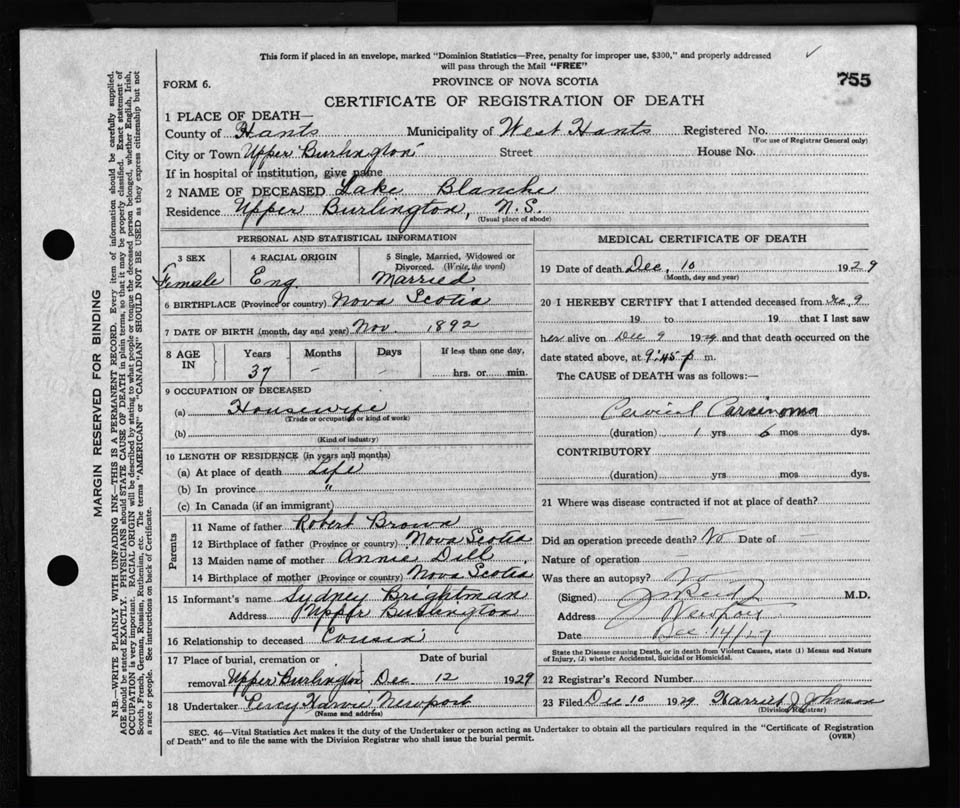 This form if placed in an envelope, marked "Dominion Statistics—Free, penalty for improper use, $300," and properly addressed
will pass through the Mail "FREE"
755
FORM 6.
PROVINCE OF NOVA SCOTIA
CERTIFICATE OF REGISTRATION OF DEATH
MARGIN RESERVED FOR BINDING
N.B.—WRITE PLAINLY WITH UNFADING INK—THIS IS A PERMANENT RECORD. Every item of information should be carefully supplied.
AGE should be stated EXACTLY. PHYSICIANS should STATE CAUSE OF DEATH in plain terms, so that it may be properly classified. Exact statement of
OCCUPATION is very important. RACIAL ORIGIN will be described by stating to what people or tongue the deceased person belonged, whether English, Irish,
Scotch, French, German, Russian, Ruthenian, etc. The terms "AMERICAN" or "CANADIAN" SHOULD NOT BE USED as they express citizenship but not
a race or people. See instructions on back of Certificate.
1 PLACE OF DEATH—
County of Hants Municipality of West Hants Registered No.
(For use of Registrar General only)
City or Town Upper Burlington Street House No.
If in hospital or institution, give name
2 NAME OF DECEASED Lake Blanche
Residence Upper Burlington, N.S.
(Usual place of abode)
PERSONAL AND STATISTICAL INFORMATION
3 SEX 4 RACIAL ORIGIN 5 Single, Married, Widowed or
Divorced. (Write the word)
Female Eng. Married
6 BIRTHPLACE (Province or country) Nova Scotia
7 DATE OF BIRTH (month, day and year) Nov. 1892
8 AGE IN Years Months Days If less than one day,
37 - - hrs. or min.
9 OCCUPATION OF DECEASED
(a) Housewife
(Trade or occupation or kind of work)
(b)
(Kind of industry)
10 LENGTH OF RESIDENCE (in years and months)
(a) At place of death Life
(b) In province "
(c) In Canada (if an immigrant)
Parents
11 Name of father Robert Brown
12 Birthplace of father (Province or country) Nova Scotia
13 Maiden name of mother Annie Dill
14 Birthplace of mother (Province or country) Nova Scotia
15 Informant's name Sydney Brightman
Address Upper Burlington
16 Relationship to deceased Cousin
17 Place of burial, cremation or Date of burial
removal Upper Burlington Dec. 12 1929
18 Undertaker Percy Newport
(Name and address)
MEDICAL CERTIFICATE OF DEATH
19 Date of death Dec. 10 1929
(Month, day and year)
20 I HEREBY CERTIFY that I attended deceased from Dec, 9
19 to 19 that I last saw
her alive on Dec 9 1929 and that death occurred on the
date stated above, at 9:45 p m.
The CAUSE of DEATH was as follows:—
Cervical Carcinoma
(duration) 1 yrs 6 mos dys.
CONTRIBUTORY
(duration) yrs mos dys.
21 Where was disease contracted if not at place of death?
Did an operation precede death? No Date of —
Nature of operation —
Was there an autopsy? No
(Signed) M.D.
Address Newport
Date Dec 14/27
State the Disease causing Death, or in death from Violent Causes, state (1) Means and Nature
of Injury, (2) whether Accidental, Suicidal or Homicidal.
22 Registrar's Record Number
23 Filed Dec 10 1929 Harriet J Johnson
(Division Registrar)
SEC. 46—Vital Statistics Act makes it the duty of the Undertaker or person acting as Undertaker to obtain all the particulars required in the "Certificate of Registration
of Death" and to file the same with the Division Registrar who shall issue the burial permit.
(OVER)